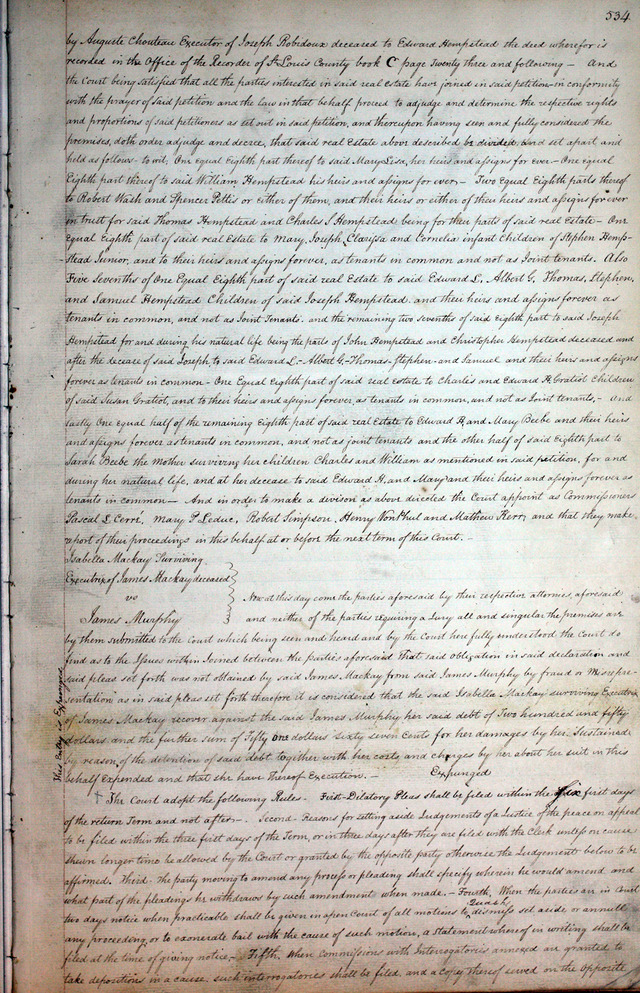 534
by Auguste Chouteau Executor of Joseph Robidoux deceased to Edward Hempstead the deed wherefor is
recorded in the Office of the Recorder of St Louis County book C page Twenty three and following - And
the Court being satisfied that all the parties interested in said real Estate have joined in said petition - in conformity
with the prayer of said petition and the law in that behalf proceed to adjudge and determine the respective rights
and proportions of said petitioners as set out in said petition, and thereupon having seen and fully considered the
premises, doth order adjudge and decree, that said real Estate above described be divided, and set apart and
held as follows - to wit, One equal Eighth part thereof to said Mary Lisa, her heirs and assigns for ever - One equal
Eighth part thereof to said William Hempstead his heirs and assigns for ever - Two Equal Eighth parts thereof
to Robert Wash and Spencer Pettis or either of them, and their heirs or either of their heirs and assigns for ever
in trust for said Thomas Hempstead and Charles S Hempstead being for their parts of said real Estate - One
Equal Eighth part of said real Estate to Mary, Joseph, Clarissa and Cornelia infant Children of Stephen Hemp-
-stead Junior, and to their heirs and assigns forever, as tenants in common and not as Joint tenants. Also
Five Sevenths of One Equal Eighth part of said real Estate to said Edward L, Albert G, Thomas, Stephen,
and Samuel Hempstead Children of said Joseph Hempstead. and their heirs and assigns forever as
tenants in common, and not as Joint Tenants. and the remaining two sevenths of said Eighth part to said Joseph
Hempstead for and during his natural life being the parts of John Hempstead and Christopher Hempstead deceased and
after the decease of said Joseph to said Edward L. - Albert G - Thomas - Stephen - and Samuel and their heirs and assigns
forever as tenants in common - One Equal Eighth part of said real Estate to Charles and Edward H, Gratiot Children
of said Susan Gratiot, and to their heirs and assigns forever, as tenants in common, and not as Joint tenants, - And
lastly one equal half of the remaining Eighth part of said real Estate to Edward H, and Mary Beebe and their heirs
and assigns forever as tenants in common, and not as joint tenants and the other half of said Eighth part to
Sarah Beebe the Mother surviving her children Charles and William as mentioned in said petition, for and
during her natural life, and at her decease to said Edward H, and Mary and their heirs and assigns forever as
tenants in common - And in order to make a divison as above directed the Court appoint as Commissioners
Pascal L Cerré, Mary P Leduc, Robert Simpson, Henry Von Phul and Mathew Kerr, and that they make
report of their proceedings in this behalf at or before the next term of this Court. -
Isabella Mackay Surviving
Executrix of James Mackay deceased
vs
James Murphy
Now at this day come the parties aforesaid by their respective attornies, aforesaid
and neither of the parties requiring a Jury all and singular the premises are
by them submitted to the Court which being seen and heard and by the Court here fully understood the Court do
find as to the Issues within Joined between the parties aforesaid That said obligation in said declaration and
said pleas set forth was not obtained by said James Mackay from said James Murphy by fraud or Misrepre-
sentation as in said pleas set forth therefore it is considered that the said Isabella Mackay surviving Executrix
of James Mackay recover against the said James Murphy her said debt of Two hundred and fifty
dollars and the further sum of Fifty one dollars Sixty seven Cents for her damages by her Sustained
by reason of the detention of said debt together with her costs and charges by her about her suit in this
behalf Expended and that she have thereof Execution. - Expunged
This Entry is Expunged
† The Court adopt the following Rules - First - Dilatory Pleas shall be filed within the six first days
of the return Term and not after - Second - Reasons for setting aside Judgements of a Justice of the peace on appeal
to be filed within the three first days of the Term, or in three days after they are filed with the Clerk unless on cause
shewn longer time be allowed by the Court or granted by the opposite party otherwise the Judgement below to be
affirmed. Third - the party moving to amend any process or pleading shall specify wherein he would amend, and
what part of the pleadings he withdraws by such amendment when made. - Fourth, When the parties are in Court
two days notice when practicable shall be given in open Court of all motions to Quash, dismiss set aside or annull
any proceeding, or to exonerate bail with the cause of such motion, a statement whereof in writing shall be
filed at the time of giving notice, - Fifth, When commissions with Interrogatories annexed are granted to
take depositions in a cause, such interrogatories shall be filed, and a copy thereof served on the opposite